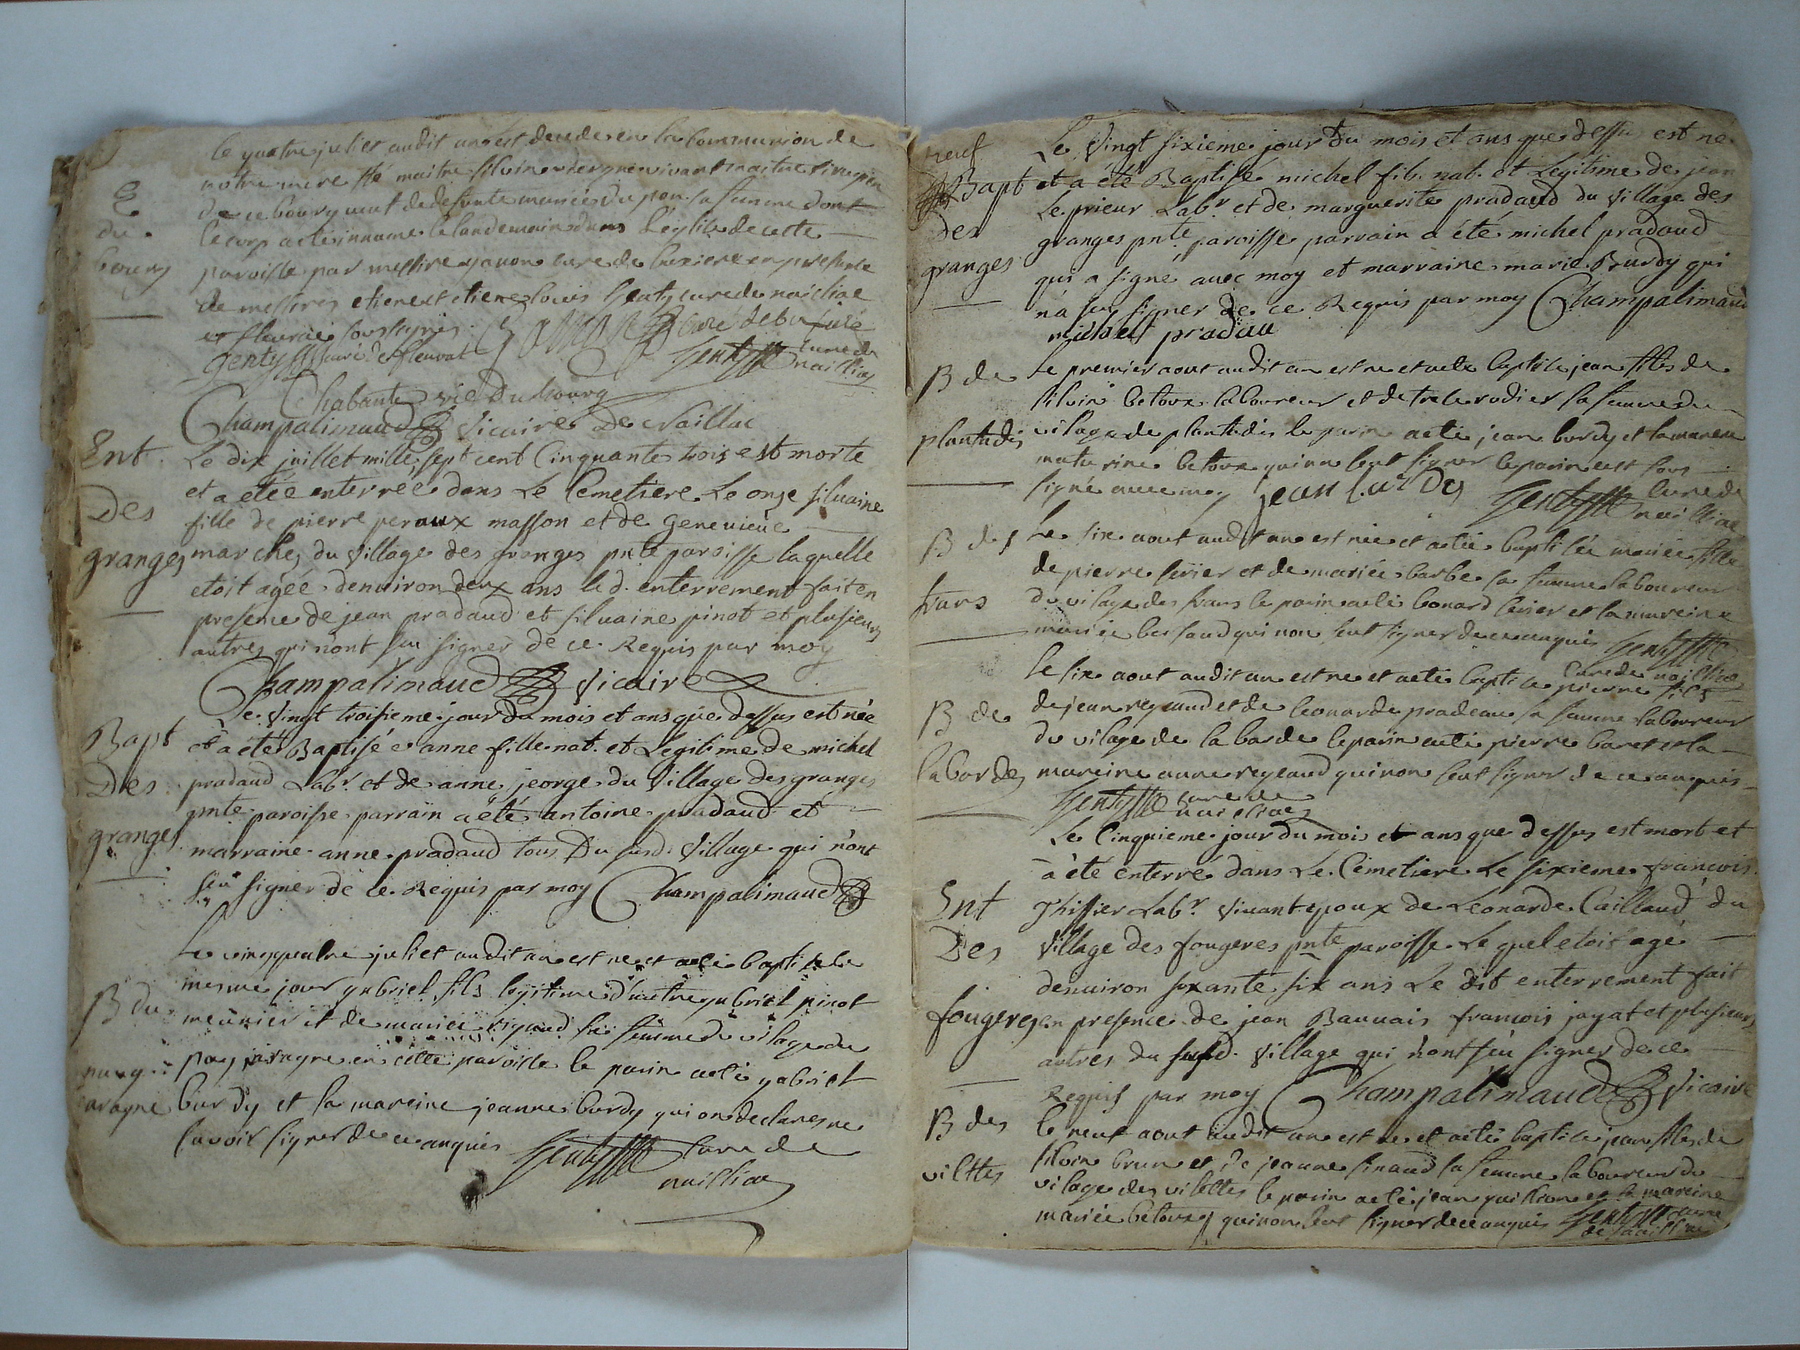 le quatre juliet audit an est decede en la communion de
notre mere Ste maitre silvin vivant maitre
de ce bourg veuf de defunte mariée dupon sa femme dont
le corp a été innumé le landemain dans l'église de cette
paroisse par messire curé de en presence
de messires etiene et etiene louis genty curé de naillac
et fleurat soussignés curé de
genty curé d'fleurat genty curé de
naillac
E
du
bourg
Chabante vic du bourg
Champalimaud vicaire de Naillac
Ent
Des
granges
Le dix juillet mille sept cent Cinquante trois est morte
et a étée enterrée dans Le Cemetiere Le onze silvaine
fille de pierre peraux masson et de Genevieve
marches du village des granges pnte paroisse laquelle
etoit agée denviron deux ans le d. enterrement fait en
presence de jean pradaud et silvaine pinot et plusieurs
autres qui nont seu signer de ce Requis par moy
Champalimaud vicaire
Bapt
Des
granges
Le vingt troisieme jour du mois et ans que dessus est née
et a été Baptisée anne fille nat. et Legitime de michel
pradaud Labr. et de anne jeorge du village des granges
pnte paroisse parrain a été antoine pradaud et
marraine anne pradaud tous Du susd. village qui n'ont
seu signer de ce Requis par moy Champalimaud
B du
Le vingquatre juliet audit an est né et a été baptisé le
mesme jour gabriel fils legitime d'autre gabriel pinot
meunier et de mariée rigaud sa femme du vilage du
puy jaragne en cette paroisse le parin a été gabriel
burdy et la mareine jeanne burdy qui on declaré ne
savoir signer de ce anquis genty curé de
naillac
neuf
Bapt
Des
granges
Le vingt sixieme jour du mois et ans que dessus est né
et a été Baptisé michel fils nat. et Legitime de jean
Le prieur Labr. et de marguerite pradaud du village des
granges pnte paroisse parrain a été michel pradaud
qui a signé avec moy et marraine marie Burdy qui
n'a seu signer de ce Requis par moy Champalimaud
michel pradau
B de
plantadis
Le premier aout audit an est né et a été baptisé jean fils de
silvin betoux laboureur et de rodier sa femme du
vilage de plantadis le parin a été jean burdy et la mareine
maturine betoux qui ne seut signer le parin est sous
signé avec moy jean burdy genty curé de
naillac
B des
frans
Le six aout audit an est née et a été baptisée mariée fille
de pierre et de mariée barbe sa femme laboureur
du vilage des frans le parin a été leonard et la mareine
mariée qui non seut signer de ce anquis genty
curé de naillac
B de
labordes
le six aout audit an est né et a été baptisé pierre fils
de jean regaud et de leonarde pradeau sa femme laboureur
du vilage de la borde le parin a été pierre baret et la
mareine anne regeaud qui non seut signer de ce anquis
genty curé de
naillac
Ent
Des
fougeres
Le Cinquieme jour du mois et ans que dessus est mort et
a été enterré dans Le Cemetiere Le sixieme francois
Labr. vivant epoux de Leonarde Caillaud du
village des fougeres pnte paroisse Le quel etoit agé
denviron soxante six ans Le dit enterrement fait
en presence de jean Bauvais francois jagat et plusieurs
autres du susd. village qui n'ont seu signer de ce
Requis par moy Champalimaud vicaire
B des
vilttes
le neuf aout audit an est né et a été baptisé jean fils de
silvin brun et de jeanne sinaud sa femme laboureur du
vilage des vilettes le parin a été jean et la mareine
mariée betoux qui non seut signer de ce anquis genty curé
de naillac